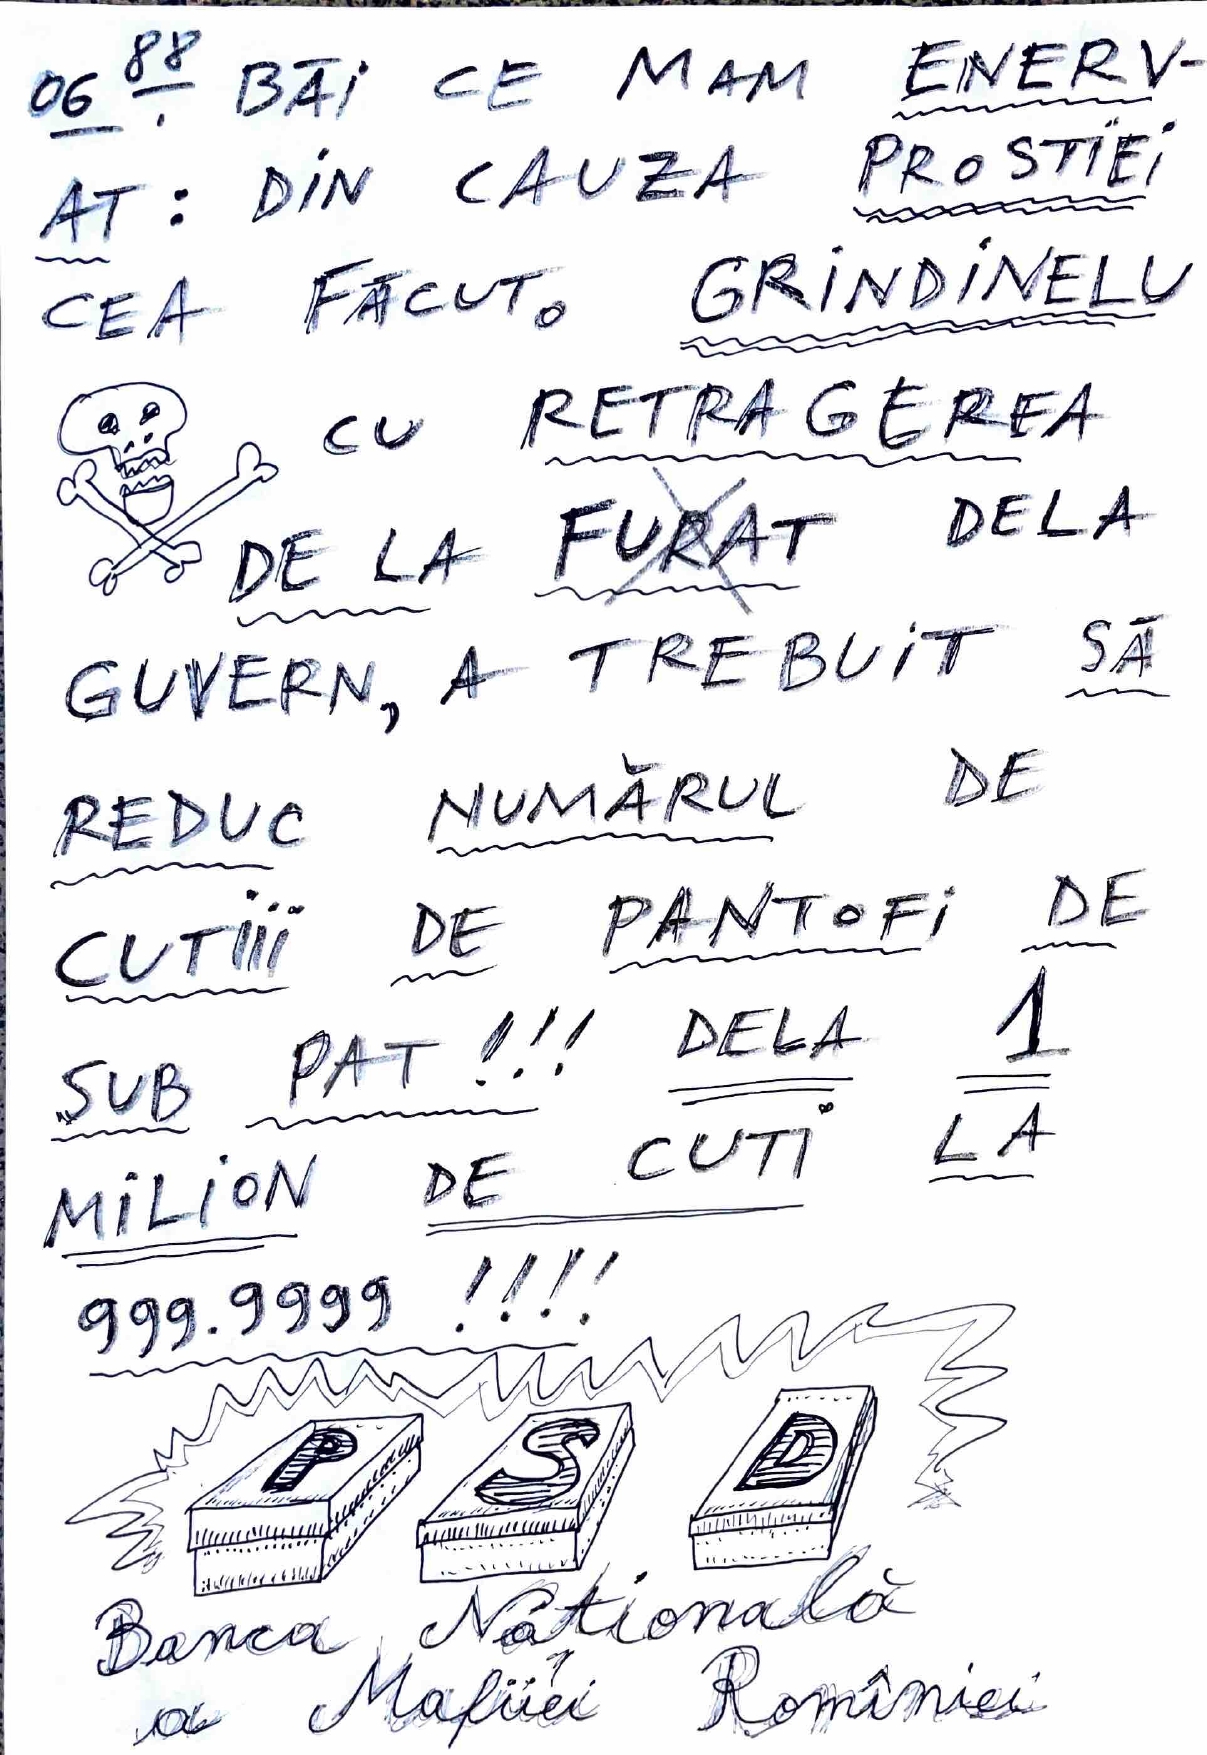 06 88. BĂi CE MAM ENERV-
AT: DiN CAUZA PROSTiEi
CEA FĂCUT. GRiNDiNELU
CU RETRAGEREA
DE LA FURAT DELA
GUVERN, A TREBUiT SĂ
REDUC NUMĂRUL DE
CUTiii DE PANTOFi DE
SUB PAT!!! DELA 1
MiLiON DE CUTi LA
999.9999 !!!!
P S D
Banca Natională
a Mafiiei Romîniei